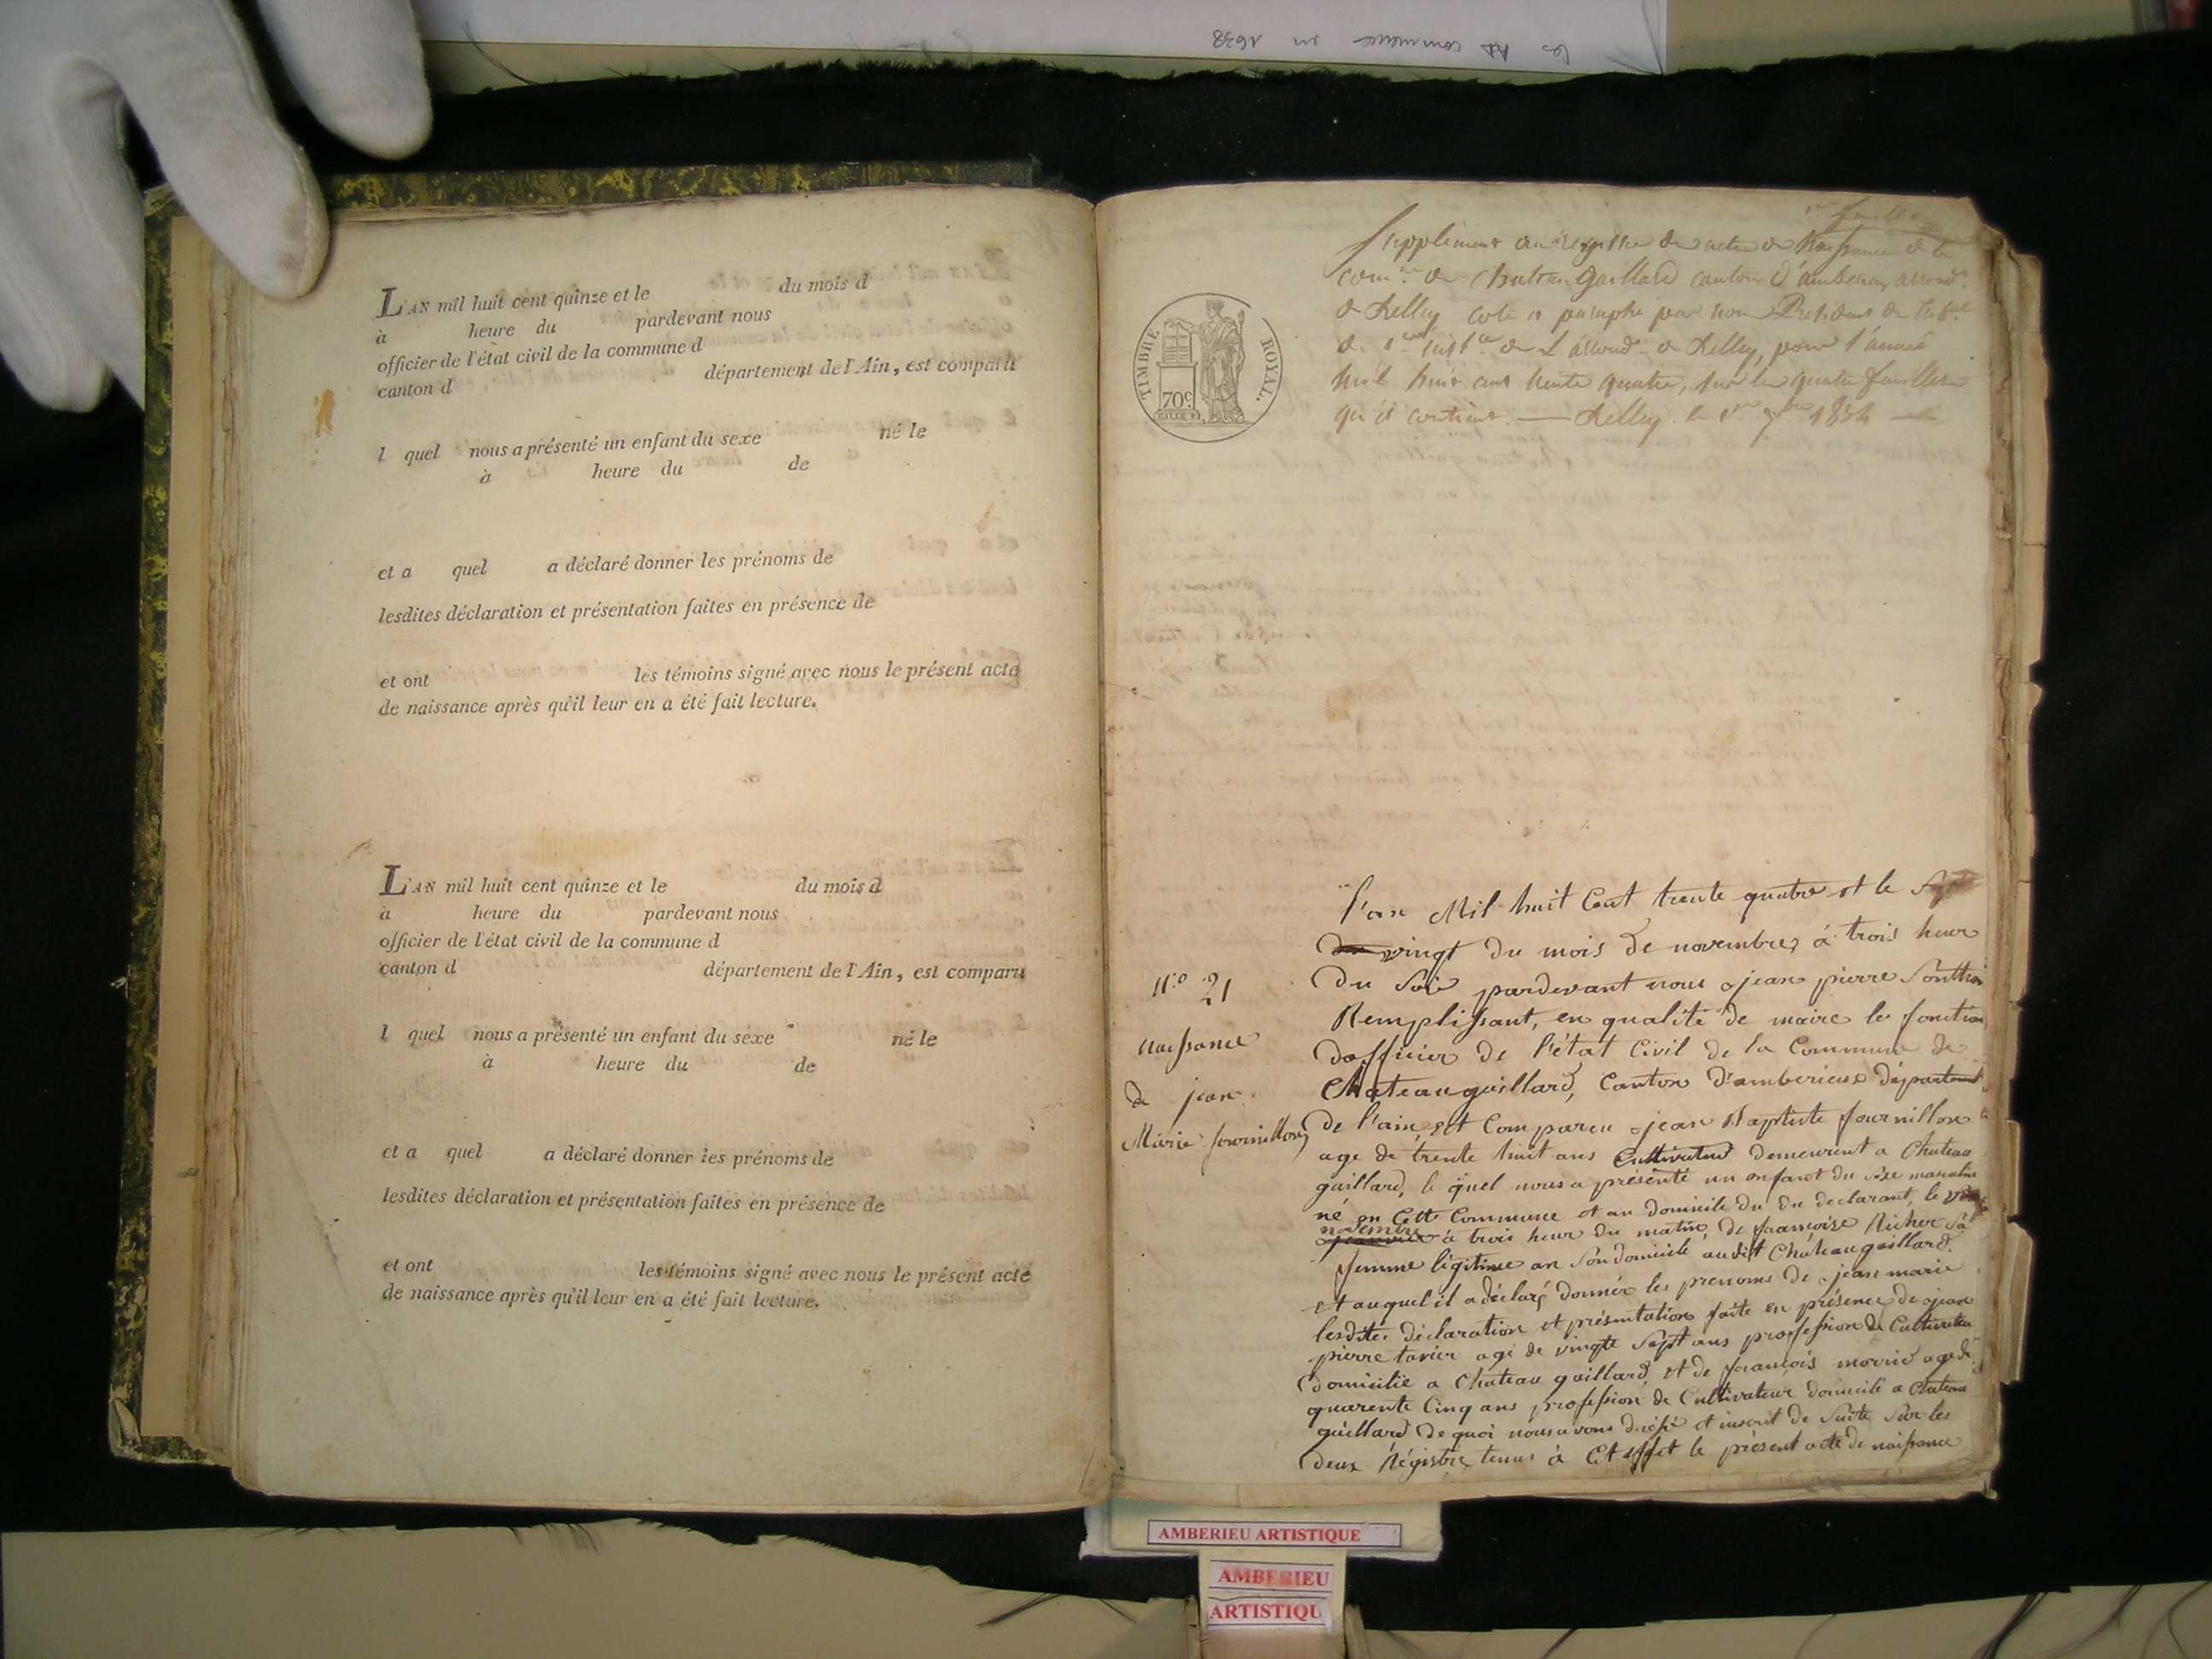 L'AN mil huit cent quinze et le du mois d
à heure du pardevant nous
officier de l'état civil de la commune d
canton d département de l'Ain, est comparu
l quel nous a présenté un enfant du sexe né le
à heure du de
et a quel a déclaré donner les prénoms de
lesdites déclaration et présentation faites en présence de
et ont les témoins signé avec nous le présent acte
de naissance après qu'il leur en a été fait lecture.
L'AN mil huit cent quinze et le du mois d
à heure du pardevant nous
officier de l'état civil de la commune d
canton d département de l'Ain, est comparu
l quel nous a présenté un enfant du sexe né le
à heure du de
et a quel a déclaré donner les prénoms de
lesdites déclaration et présentation faites en présence de
et ont les témoins signé avec nous le présent acte
de naissance après qu'il leur en a été fait lecture.
TIMBRE ROYAL.
70c
Supplément au registre des actes de Naissance de la
canton d'amberieu
coté et paraphé par nous Président
de pour l'année
mil huit cent trente quatre, sur les quatre feuilles
qu'il contient. — le 1er 1834
N.o 21
naissance
de jean
Marie fournillon
l'an Mil huit Cent trente quatre et le
vingt du mois de novembre, à trois heur
du Soir pardevant nous jean pierre
Remplissant, en qualité de maire les fonction
d'officier de l'état Civil de la Commune de
Chateaugaillard, Canton d'amberieux département
de l'ain, est Comparu jean Baptiste fournillon
age de trente huit ans Cultivateur demeurent a Chateau
gaillard, le quel nous a présenté un enfant du sexe masculin
né en Cette Commune et au domicile du du declarant, le
novembre à trois heur du matin, de françoise Richer Sa
femme légitime an Son domicile audit Châteaugaillard.
et auquel il a déclaré donner les prenoms de jean marie
lesdites déclaration et présentation faite en présence de jean
pierre tavier agé de vingte Sept ans profession de Cultivateur
domicilie a Chateau gaillard, et de françois age de
quarente Cinq ans profession de Cultivateur domicilé a Chateau
gaillard de quoi nous avons dressé et inscrit de Suite Sur les
deux Régistre tenus à Cet effet le présent acte de naissance
AMBERIEU ARTISTIQUE
AMBERIEU
ARTISTIQU